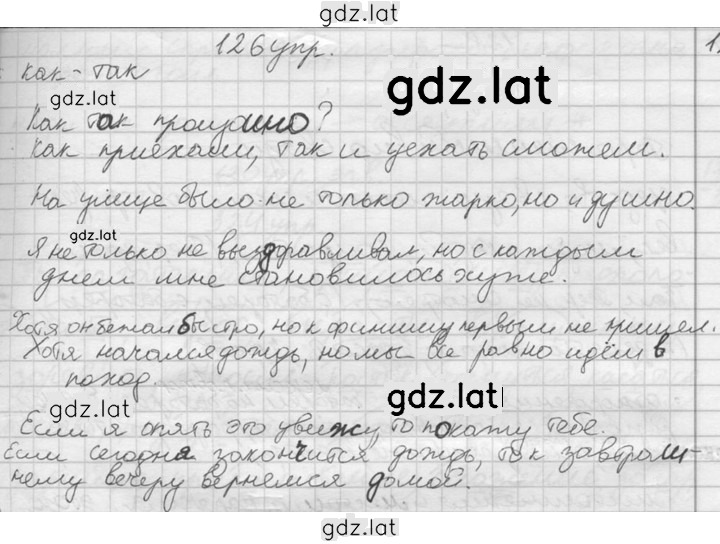 gdz.lat
126 упр.
1
как - так
gdz.lat
gdz.lat
Как так произошло?
Как приехали, так и уехать сможем.
На улице было не только жарко, но и душно.
gdz.lat
Я не только не выздоравливал, но с каждым
днем мне становилось хуже.
Хотя он бежал быстро, но к финишу первым не пришел.
Хотя начался дождь, но мы все равно идём в
поход.
gdz.lat
gdz.lat
Если я опять это увижу, то покажу тебе.
Если сегодня закончится дождь, то к завтраш-
нему вечеру вернемся домой.
gdz.lat